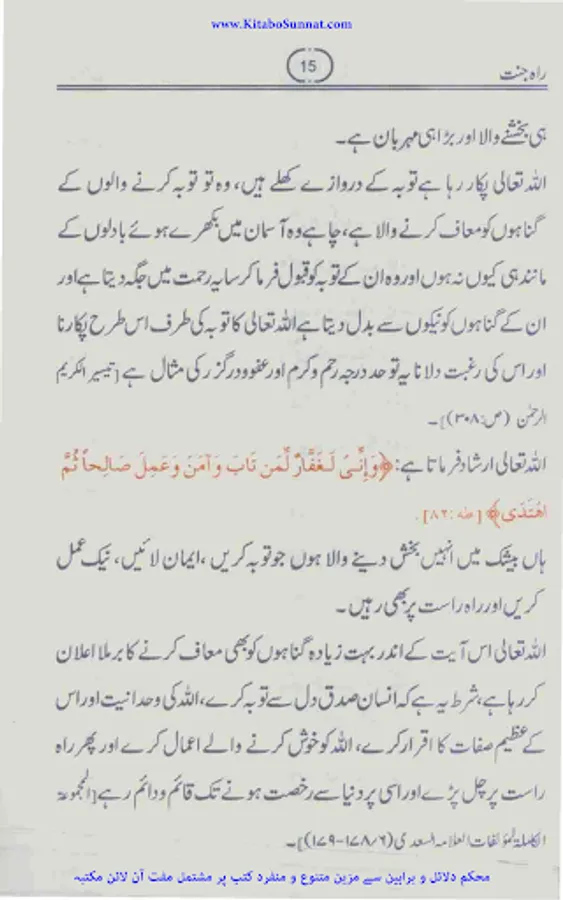 www.KitaboSunnat.com
15
راہ جنت
ہی بخشنے والا اور بڑا ہی مہربان ہے۔
اللہ تعالی پکار رہا ہے توبہ کے دروازے کھلے ہیں، وہ تو توبہ کرنے والوں کے
گناہوں کو معاف کرنے والا ہے، چاہے وہ آسمان میں بکھرے ہوئے بادلوں کے
مانند ہی کیوں نہ ہوں اور وہ ان کے توبہ کو قبول فرما کر سایہ رحمت میں جگہ دیتا ہے اور
ان کے گناہوں کو نیکوں سے بدل دیتا ہے اللہ تعالی کا توبہ کی طرف اس طرح پکارنا
اور اس کی رغبت دلانا یہ تو حد درجہ رحم و کرم اور عفو و درگزر کی مثال ہے [تیسیر الکریم
الرحمٰن (ص:۳۰۸)]۔
اللہ تعالی ارشاد فرماتا ہے: ﴿وَإِنِّیْ لَغَفَّارٌ لِّمَن تَابَ وَآمَنَ وَعَمِلَ صَالِحاً ثُمَّ
اهْتَدَى﴾ [طہ:۸۲].
ہاں بیشک میں انہیں بخش دینے والا ہوں جو توبہ کریں، ایمان لائیں، نیک عمل
کریں اور راہ راست پر بھی رہیں۔
اللہ تعالی اس آیت کے اندر بہت زیادہ گناہوں کو بھی معاف کرنے کا برملا اعلان
کر رہا ہے، شرط یہ ہے کہ انسان صدق دل سے توبہ کرے، اللہ کی وحدانیت اور اس
کے عظیم صفات کا اقرار کرے، اللہ کو خوش کرنے والے اعمال کرے اور پھر راہ
راست پر چل پڑے اور اسی پر دنیا سے رخصت ہونے تک قائم و دائم رہے [المجموعۃ
الکاملۃ لمؤلفات العلامہ السعدی (۶/۱۷۸-۱۷۹)]۔
محکم دلائل و براہین سے مزین متنوع و منفرد کتب پر مشتمل مفت آن لائن مکتبہ